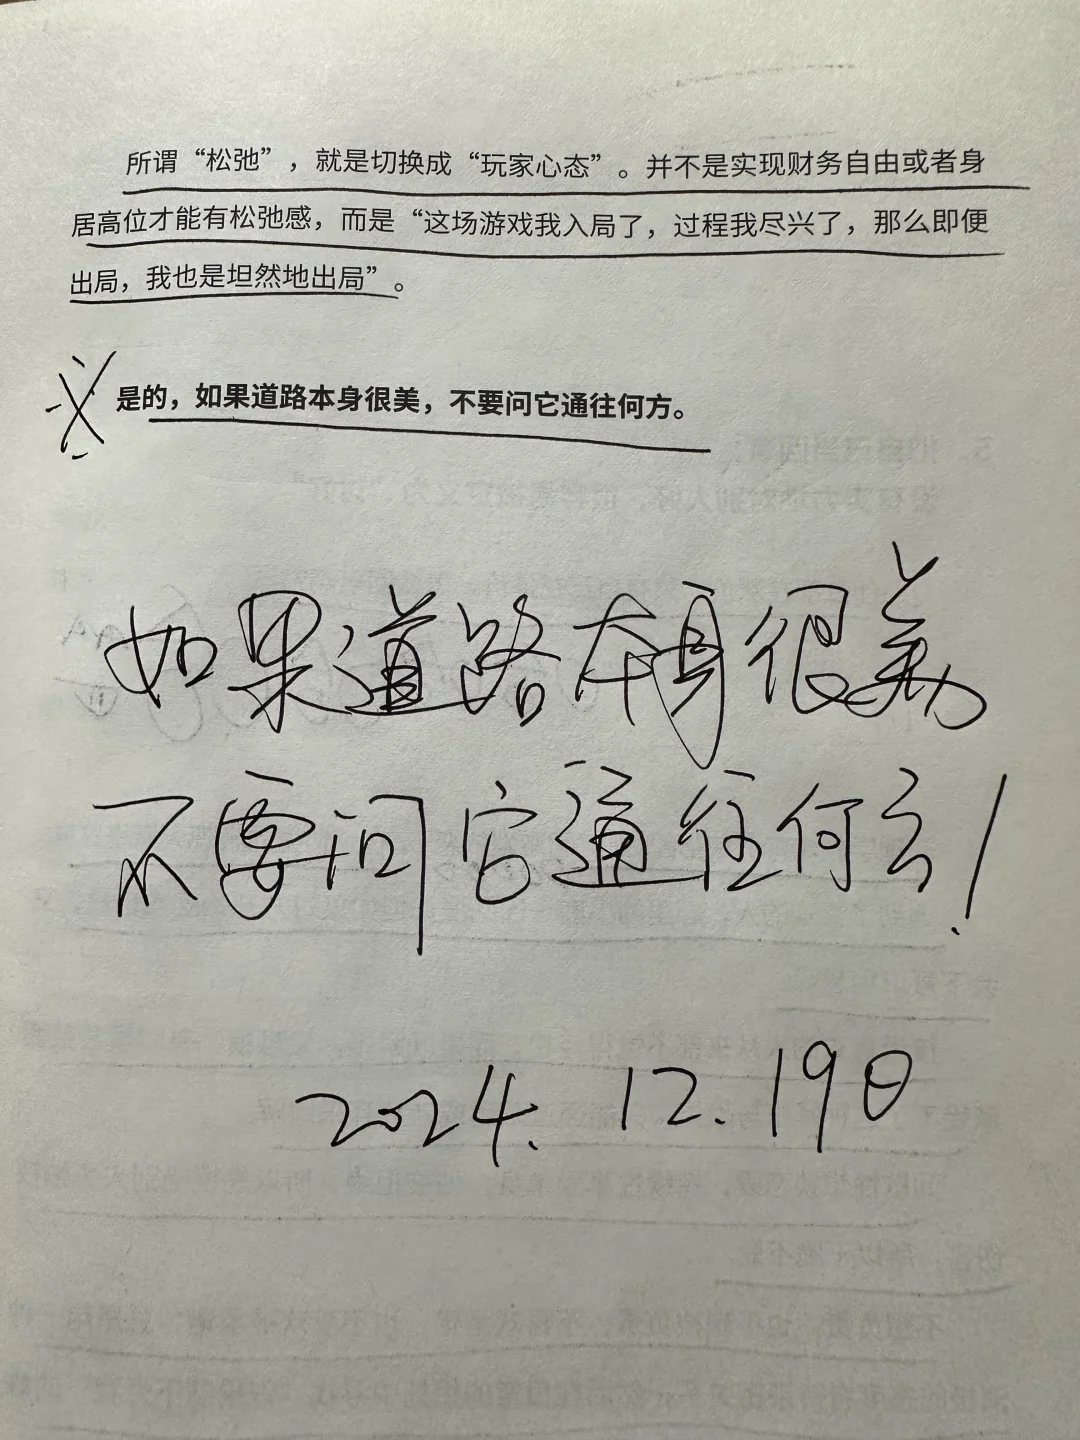 所谓“松弛”，就是切换成“玩家心态”。并不是实现财务自由或者身
居高位才能有松弛感，而是“这场游戏我入局了，过程我尽兴了，那么即便
出局，我也是坦然地出局”。
是的，如果道路本身很美，不要问它通往何方。
如果道路本身很美
不要问它通往何方！
2024.12.19日